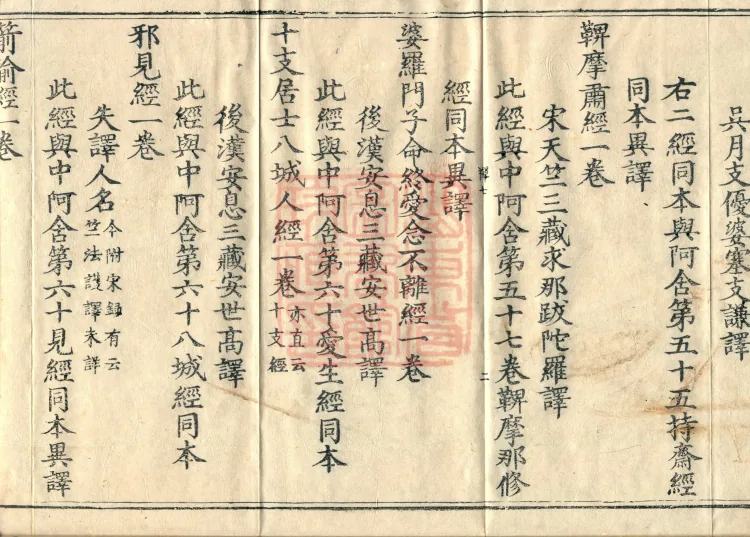 吳月支優婆塞支謙譯
右二經同本與阿舍第五十五持齋經
同本異譯
鞞摩肅經一卷
宋天竺三藏求那跋陀羅譯
此經與中阿舍第五十七卷鞞摩那修
經同本異譯
婆羅門子命終愛念不離經一卷
後漢安息三藏安世高譯
此經與中阿舍第六十愛生經同本
十支居士八城人經一卷 亦直云
十支經
後漢安息三藏安世高譯
此經與中阿舍第六十八城經同本
邪見經一卷
失譯人名 今附宋錄有云
竺法護譯未詳
此經與中阿舍第六十見經同本異譯
箭喻經一卷